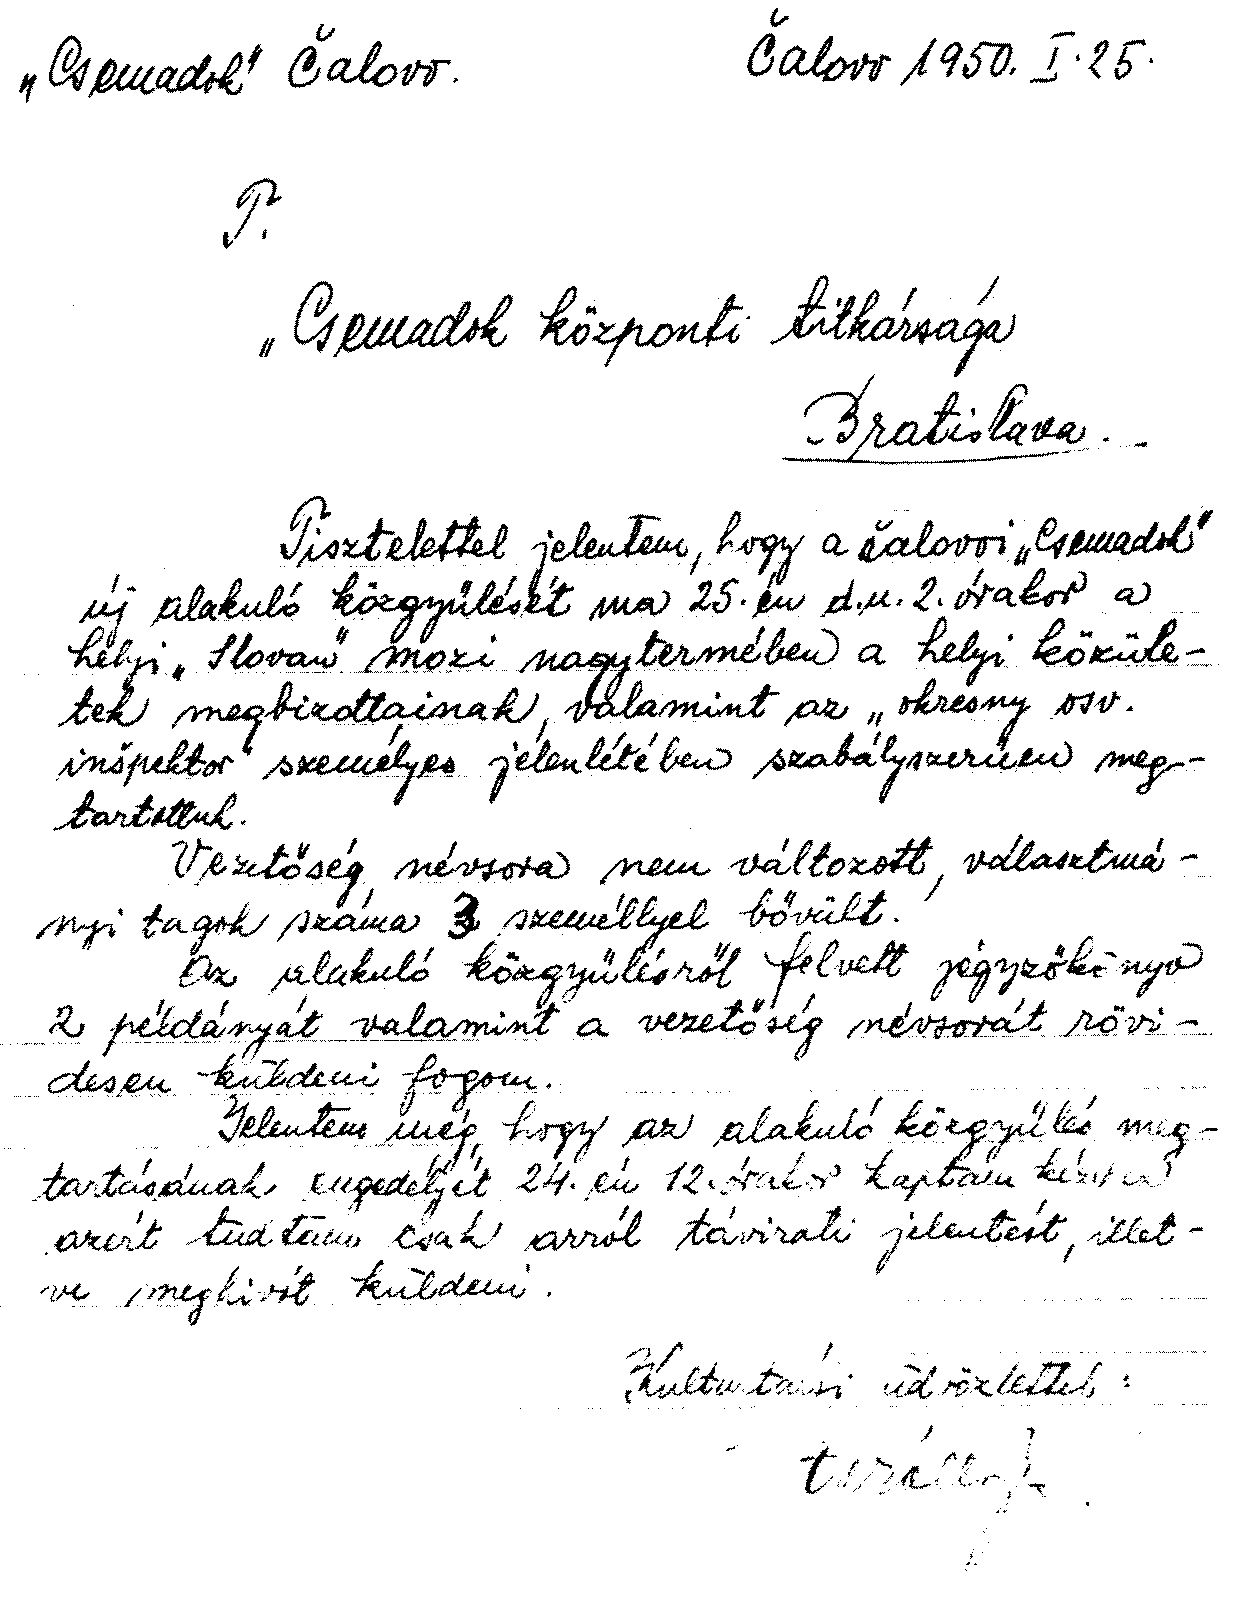 „Csemadok" Čalovo. Čalovo 1950. I. 25.
P.
„Csemadok központi titkársága
Bratislava.
Tisztelettel jelentem, hogy a čalovoi „Csemadok"
új alakuló közgyülését ma 25.-én d.u. 2. órakor a
helyi „Slovan" mozi nagytermében a helyi közüle-
tek megbizottainak, valamint az „okresny osv.
inšpektor" személyes jelenlétében szabályszerüen meg-
tartottuk.
Vezetőség névsora nem változott, választmá-
nyi tagok száma 3 személlyel bővült.
Az alakuló közgyülésről felvett jegyzőkönyv
2 példányát valamint a vezetőség névsorát rövi-
desen küldeni fogom.
Jelentem még, hogy az alakuló közgyülés meg-
tartásának engedélyét 24.-én 12. órakor kaptam
azért tudtam csak arról távirati jelentést, illet-
ve meghivót küldeni.
üdvözlettel: